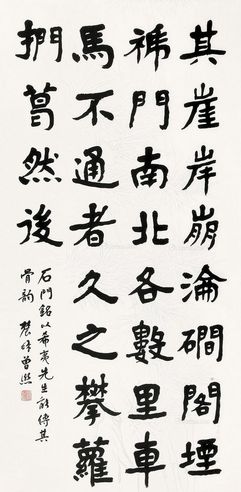 其崖岸崩淪磵閣堙
褫門南北各數里車
馬不通者久之攀蘿
捫葛然後
石門銘以希夷先生能傳其
骨韵 農髯曾熙